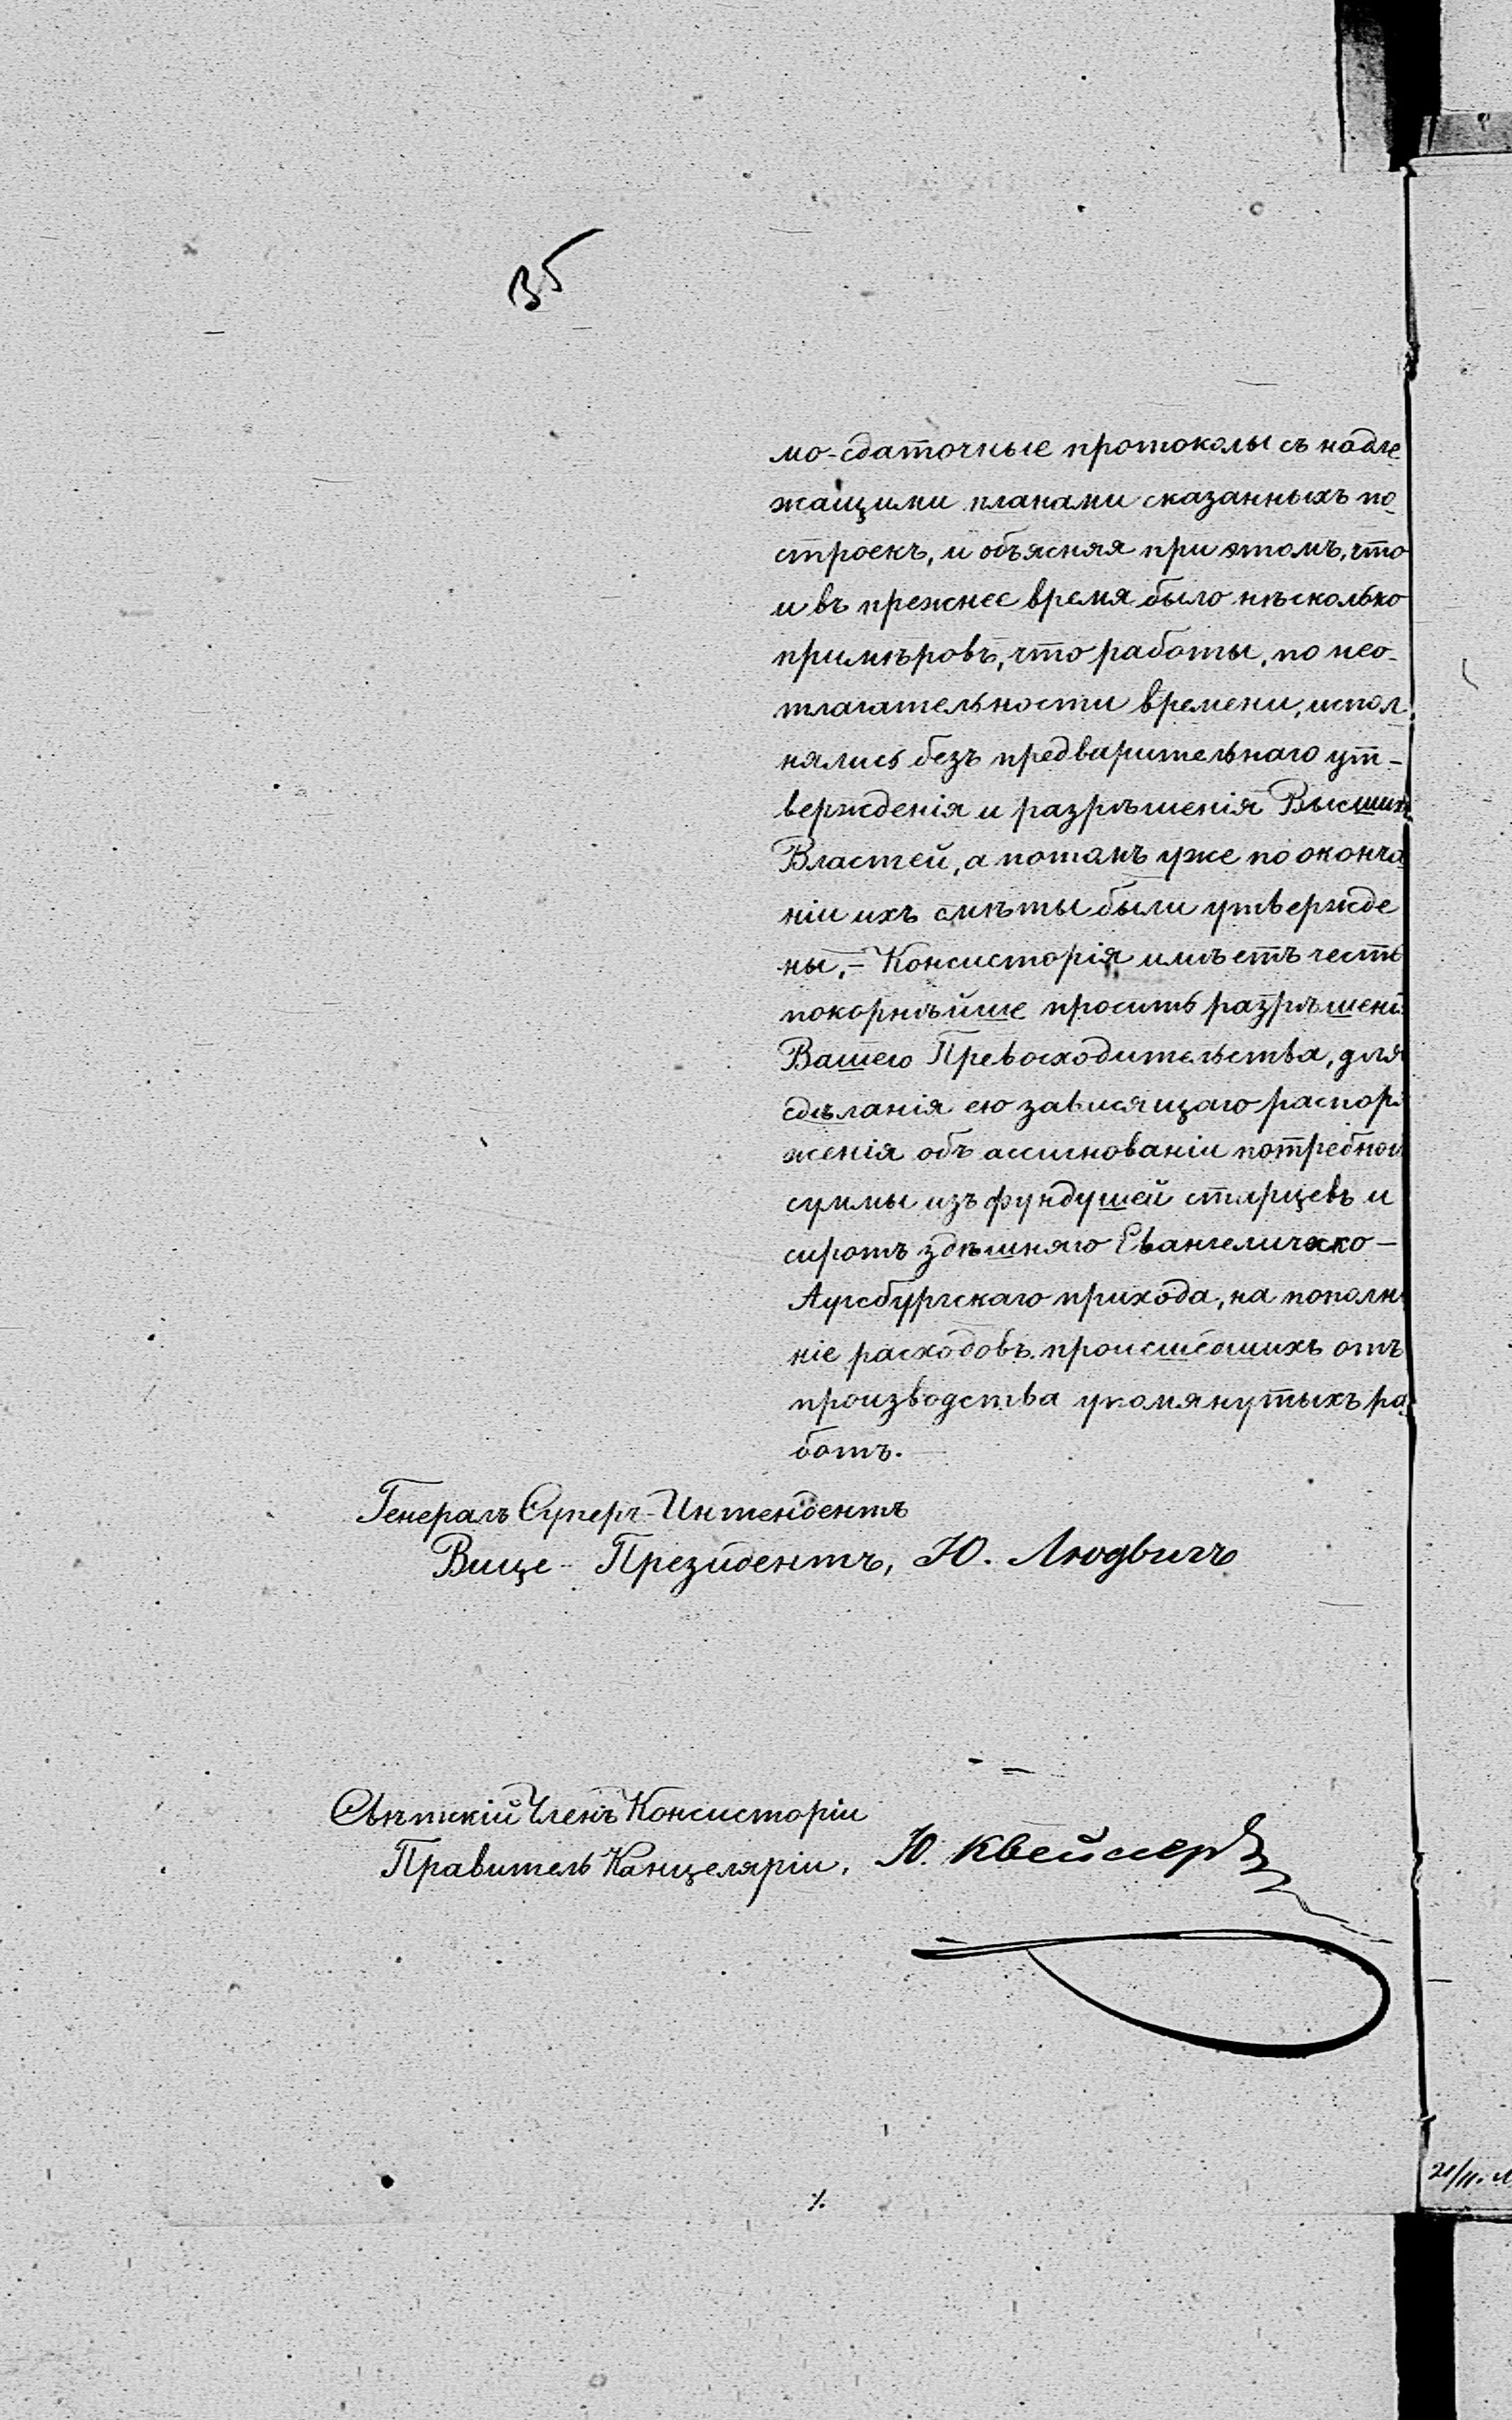 35
мо-сдаточные протоколы съ надле
жащими планами сказанныхъ по
строекъ, и объясняя при этомъ, что
и въ прежнее время было нѣсколько
примѣровъ, что работы, по нео-
тлагательности времени, испол
нялись безъ предварительнаго ут-
вержденія и разрѣшенія Высшихъ
Властей, а потомъ уже по оконча
ніи ихъ смѣты были утвержде
ны, – Консисторія имѣетъ честь
покорнѣйше просить разрѣшенія
Вашего Превосходительства, для
сдѣланія ею зависящаго распоря
женія объ ассигнованіи потребной
суммы изъ фундушей старцевъ и
сиротъ здѣшняго Евангелическо-
Аугсбургскаго прихода, на пополне
ніе расходовъ, происшедшихъ отъ
производства упомянутыхъ ра
ботъ.
Генералъ Суперъ-Интендентъ
Вице-Президентъ, Ю. Людвигъ
Свѣтскій Членъ Консисторіи
Правитель Канцеляріи, Ю. Квейссеръ
21/11.